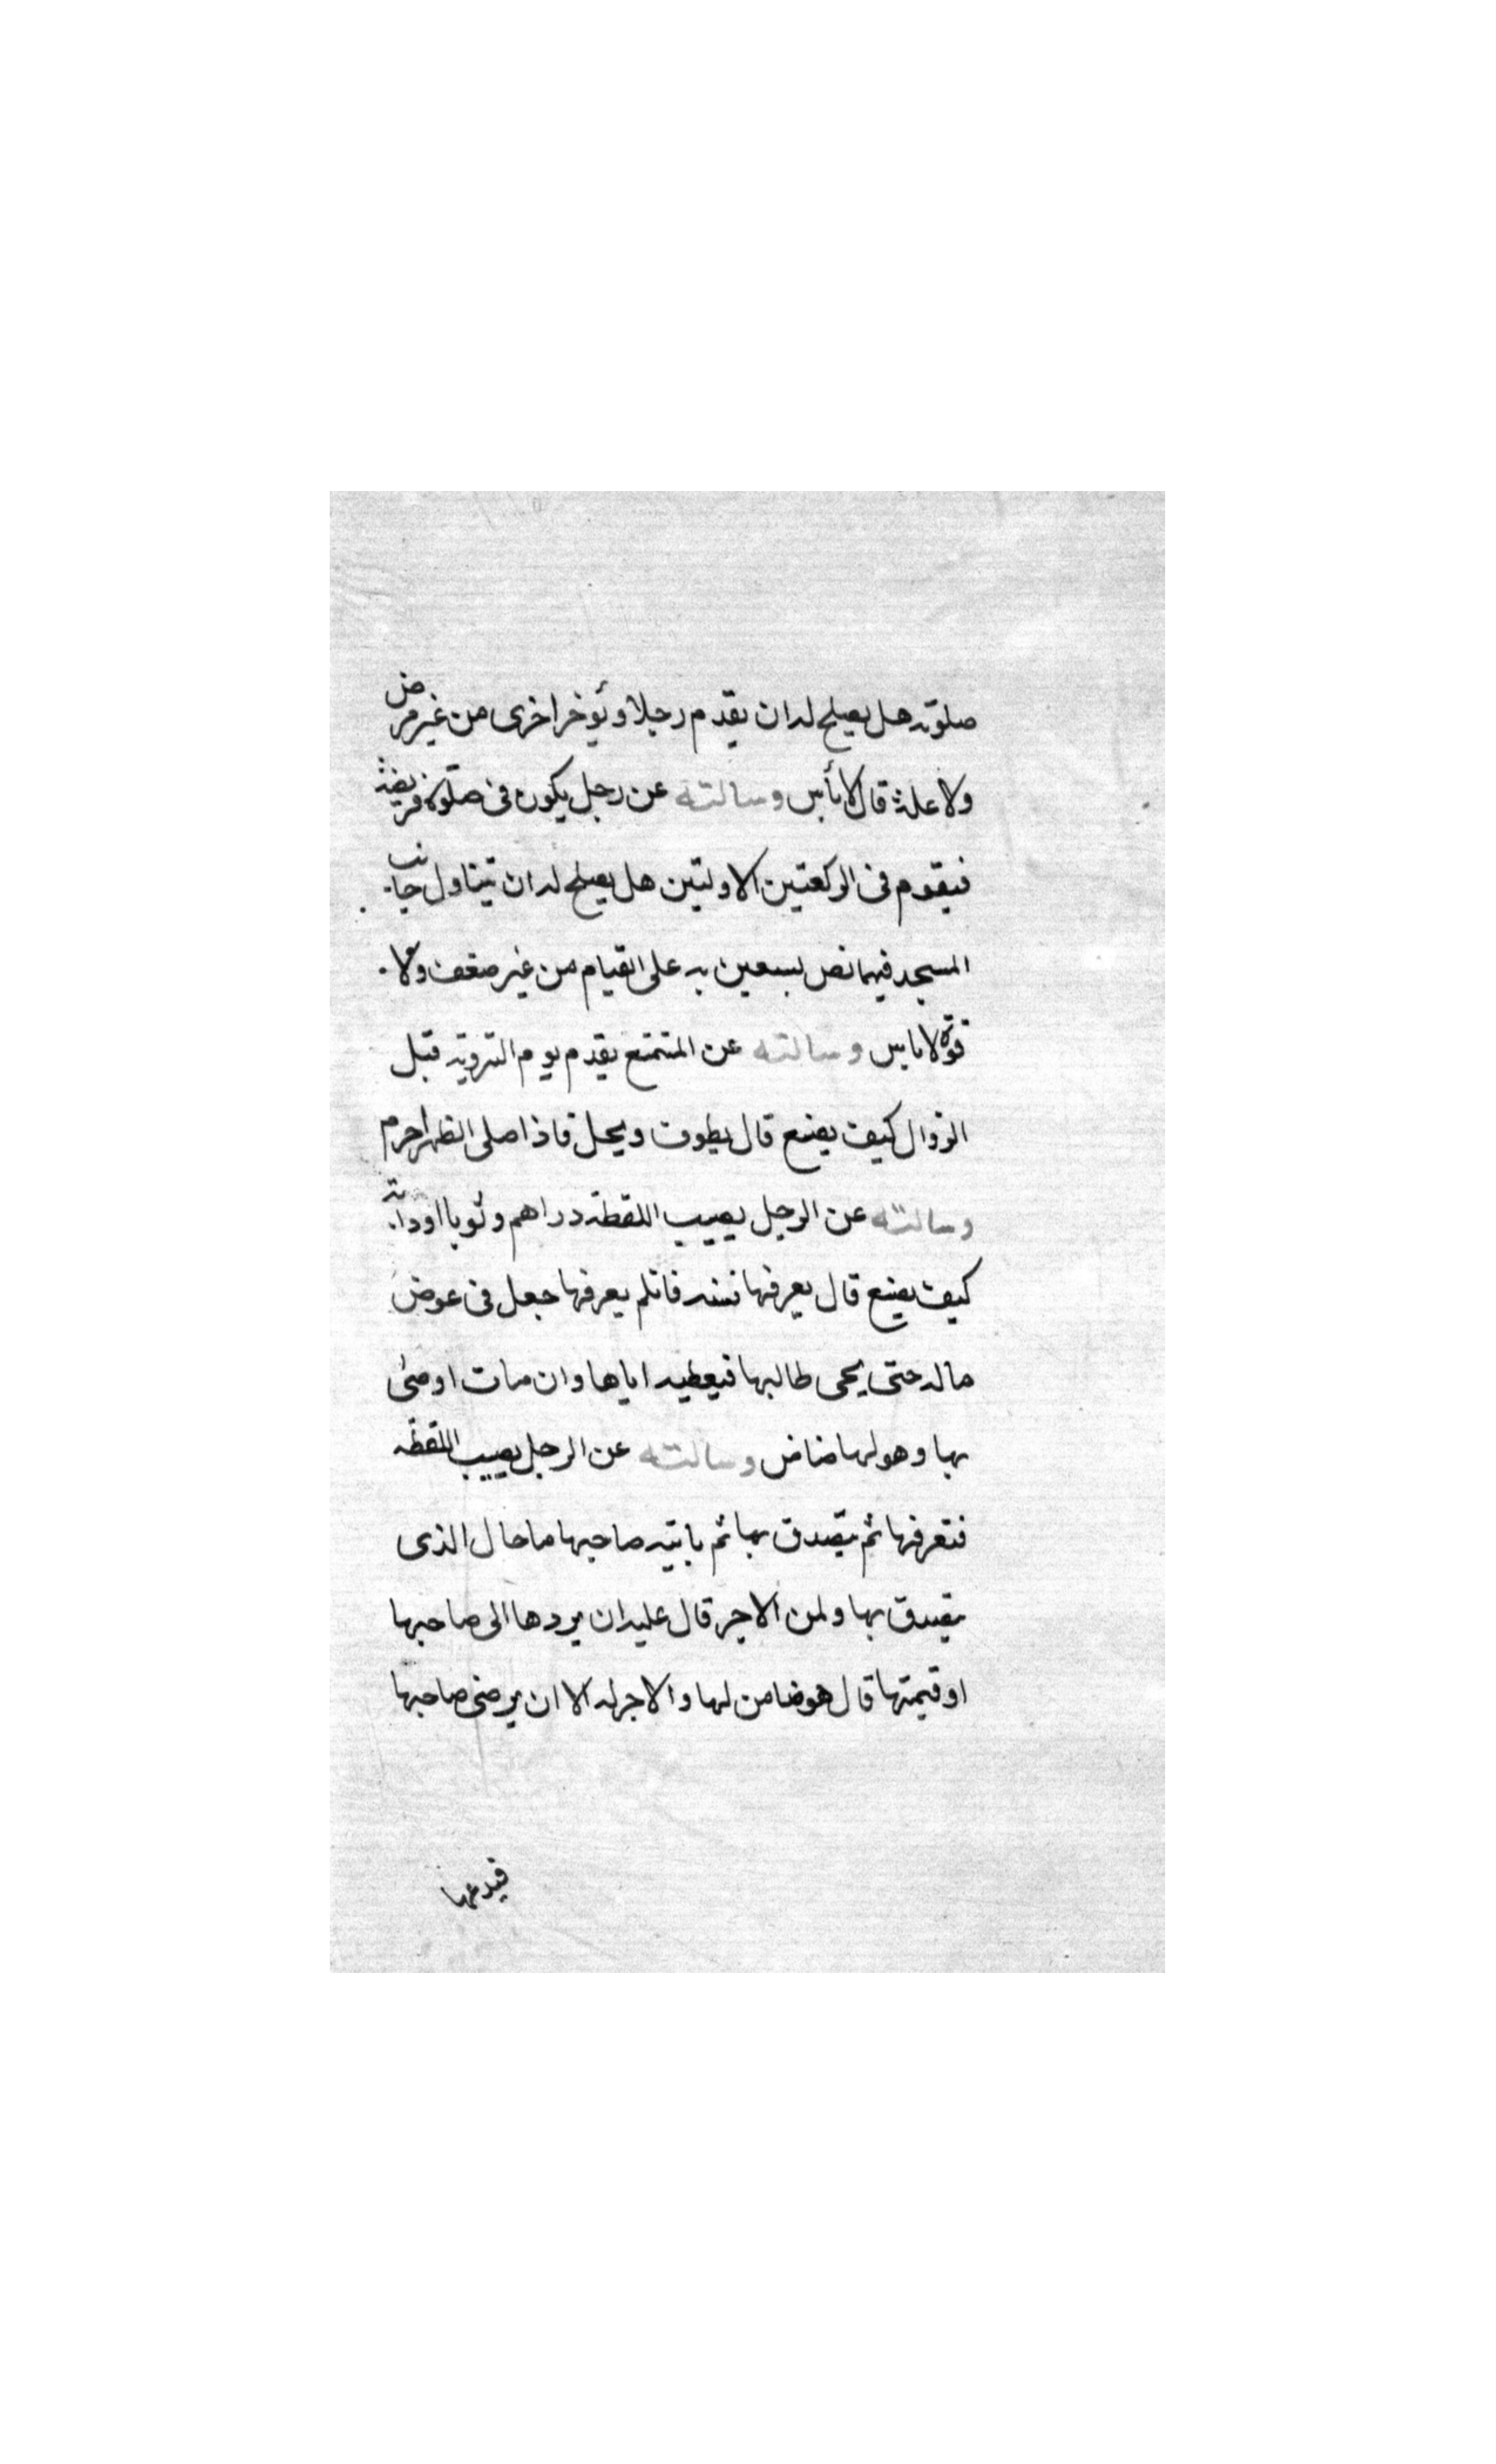 صلوته هل يصلح له ان يقدم رجلا ويؤخر اخرى من غير مرض
ولا علة قال لا بأس وسالته عن رجل يكون فى صلوة فريضة
فيقوم فى الركعتين الاولتين هل يصلح له ان يتناول جانب
المسجد فينهض يستعين به على القيام من غير ضعف ولا
قوة لا باس وسالته عن المتمتع يقدم يوم التروية قبل
الزوال كيف يصنع قال يطوف ويحل فاذا صلى الظهر احرم
وسالته عن الرجل يصيب اللقطة دراهم وثوبا او دابة
كيف يصنع قال يعرفها سنة فانلم يعرفها جعل فى عرض
ماله حتى يجى طالبها فيعطيه اياها وان مات اوصى
بها وهو لها ضامن وسالته عن الرجل يصيب اللقطة
فتعرفها ثم يتصدق بها ثم ياتيه صاحبها ما حال الذى
يتصدق بها ولمن الاجر قال عليه ان يردها الى صاحبها
او قيمتها قال هو ضامن لها والاجر له الا ان يرضى صاحبها
فيدعها